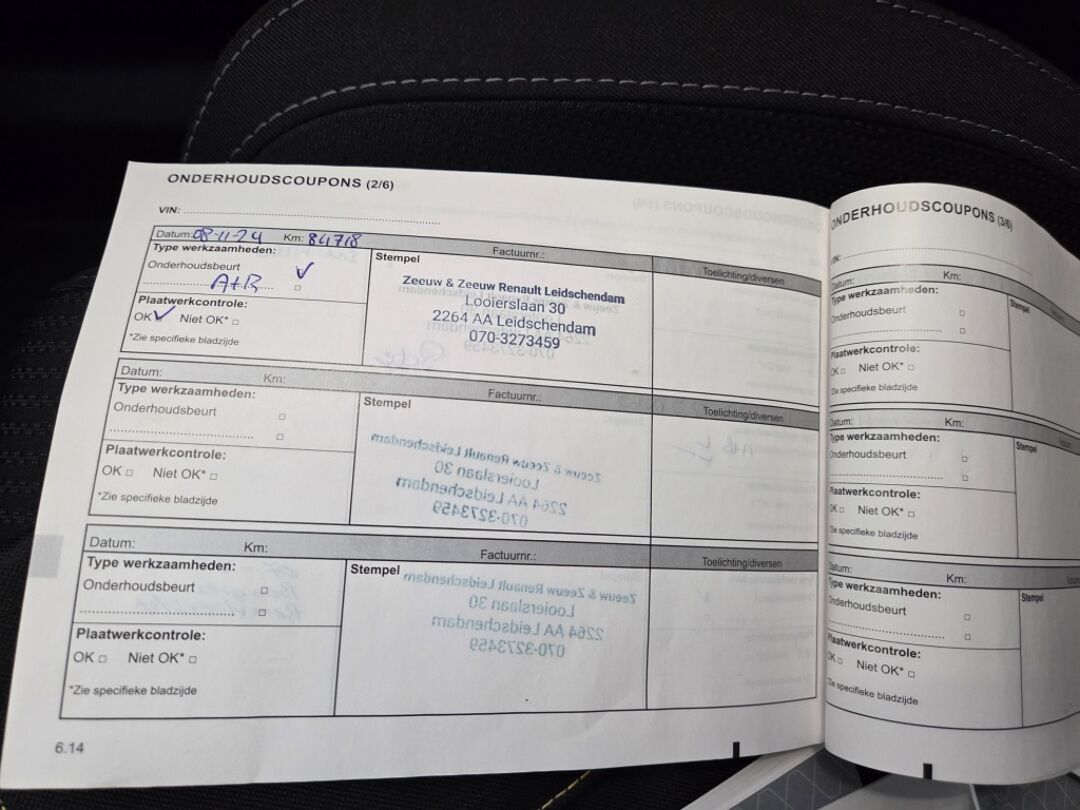 ONDERHOUDSCOUPONS (2/6)
VIN:
Datum: 08-11-24 Km: 84718 Factuurnr.: Toelichting/diversen
Type werkzaamheden:
Onderhoudsbeurt
A+B
Plaatwerkcontrole:
OK Niet OK*
*Zie specifieke bladzijde
Stempel
Zeeuw & Zeeuw Renault Leidschendam
Looierslaan 30
2264 AA Leidschendam
070-3273459
Datum: Km: Factuurnr.: Toelichting/diversen
Type werkzaamheden:
Onderhoudsbeurt
Plaatwerkcontrole:
OK Niet OK*
*Zie specifieke bladzijde
Stempel
Zeeuw & Zeeuw Renault Leidschendam
Looierslaan 30
2264 AA Leidschendam
070-3273459
Datum: Km: Factuurnr.: Toelichting/diversen
Type werkzaamheden:
Onderhoudsbeurt
Plaatwerkcontrole:
OK Niet OK*
*Zie specifieke bladzijde
Stempel
Zeeuw & Zeeuw Renault Leidschendam
Looierslaan 30
2264 AA Leidschendam
070-3273459
6.14
ONDERHOUDSCOUPONS (3/6)
VIN:
Datum: Km:
Type werkzaamheden:
Onderhoudsbeurt
Plaatwerkcontrole:
OK Niet OK*
*Zie specifieke bladzijde
Stempel
Datum: Km:
Type werkzaamheden:
Onderhoudsbeurt
Plaatwerkcontrole:
OK Niet OK*
*Zie specifieke bladzijde
Stempel
Datum: Km:
Type werkzaamheden:
Onderhoudsbeurt
Plaatwerkcontrole:
OK Niet OK*
*Zie specifieke bladzijde
Stempel